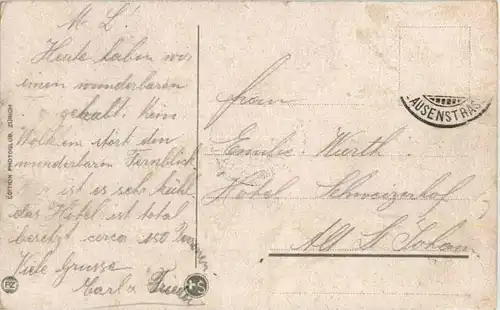 M. L!
Heute haben wir
einen wunderbaren
gehabt. Kein
Wölklein stört den
wunderbaren Fernblick
ist es sehr kühl
das Hotel ist total
besetzt circa 150 Personen
Viele Grüsse
Carl &
EDITION PHOTOGLOB, ZÜRICH
PZ
AUSENSTRAS
Frau
Emilie Wirth
Hotel Schweizerhof
Alt St. Johann